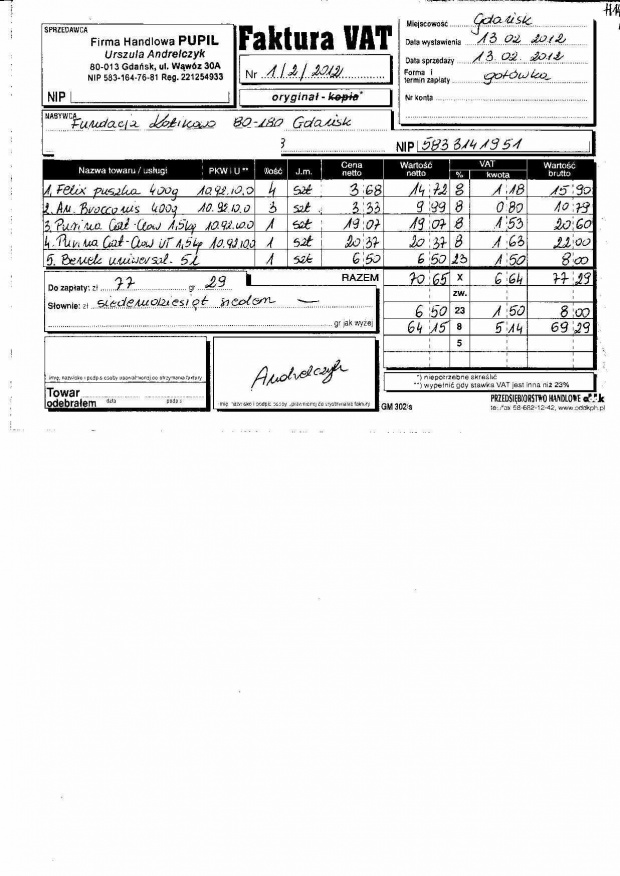 SPRZEDAWCA
Firma Handlowa PUPIL
Urszula Andrelczyk
80-013 Gdańsk, ul. Wąwóz 30A
NIP 583-164-76-81 Reg. 221254933
NIP
Faktura VAT
Nr 1/2/2012
oryginał - kopia*
Miejscowość Gdańsk
Data wystawienia 13 02 2012
Data sprzedaży 13.02.2012
Forma i termin zapłaty gotówka
Nr konta
NABYWCA
Fundacja Kotkowo 80-180 Gdańsk
3
NIP 5833141951
Nazwa towaru / usługi PKW i U ** Ilość J.m. Cena netto Wartość netto VAT % kwota Wartość brutto
1. Felix puszka 400g 10.92.10.0 4 szt 3 68 14 72 8 1 18 15 90
2. An. Brocconis 400g 10.92.10.0 3 szt 3 33 9 99 8 0 80 10 79
3. Purina Cat-Chow 1,5kg 10.92.10.0 1 szt 19 07 19 07 8 1 53 20 60
4. Purina Cat-Chow UT 1,5kg 10.92.10.0 1 szt 20 37 20 37 8 1 63 22 00
5. Benek uniwersal. 5L 1 szt 6 50 6 50 23 1 50 8 00
RAZEM 70 65 X 6 64 77 29
Do zapłaty: zł 77 gr 29
zw.
Słownie: zł siedemdziesiąt siedem
6 50 23 1 50 8 00
gr jak wyżej
64 15 8 5 14 69 29
5
Andrelczyk
imię, nazwisko i podpis osoby uprawnionej do otrzymania faktury
Towar odebrałem
data
podpis
imię, nazwisko i podpis osoby uprawnionej do wystawienia faktury
*) niepotrzebne skreślić
**) wypełnić gdy stawka VAT jest inna niż 23%
GM 302/s
PRZEDSIĘBIORSTWO HANDLOWE
tel./fax 58-682-12-42, www.oddkph.pl